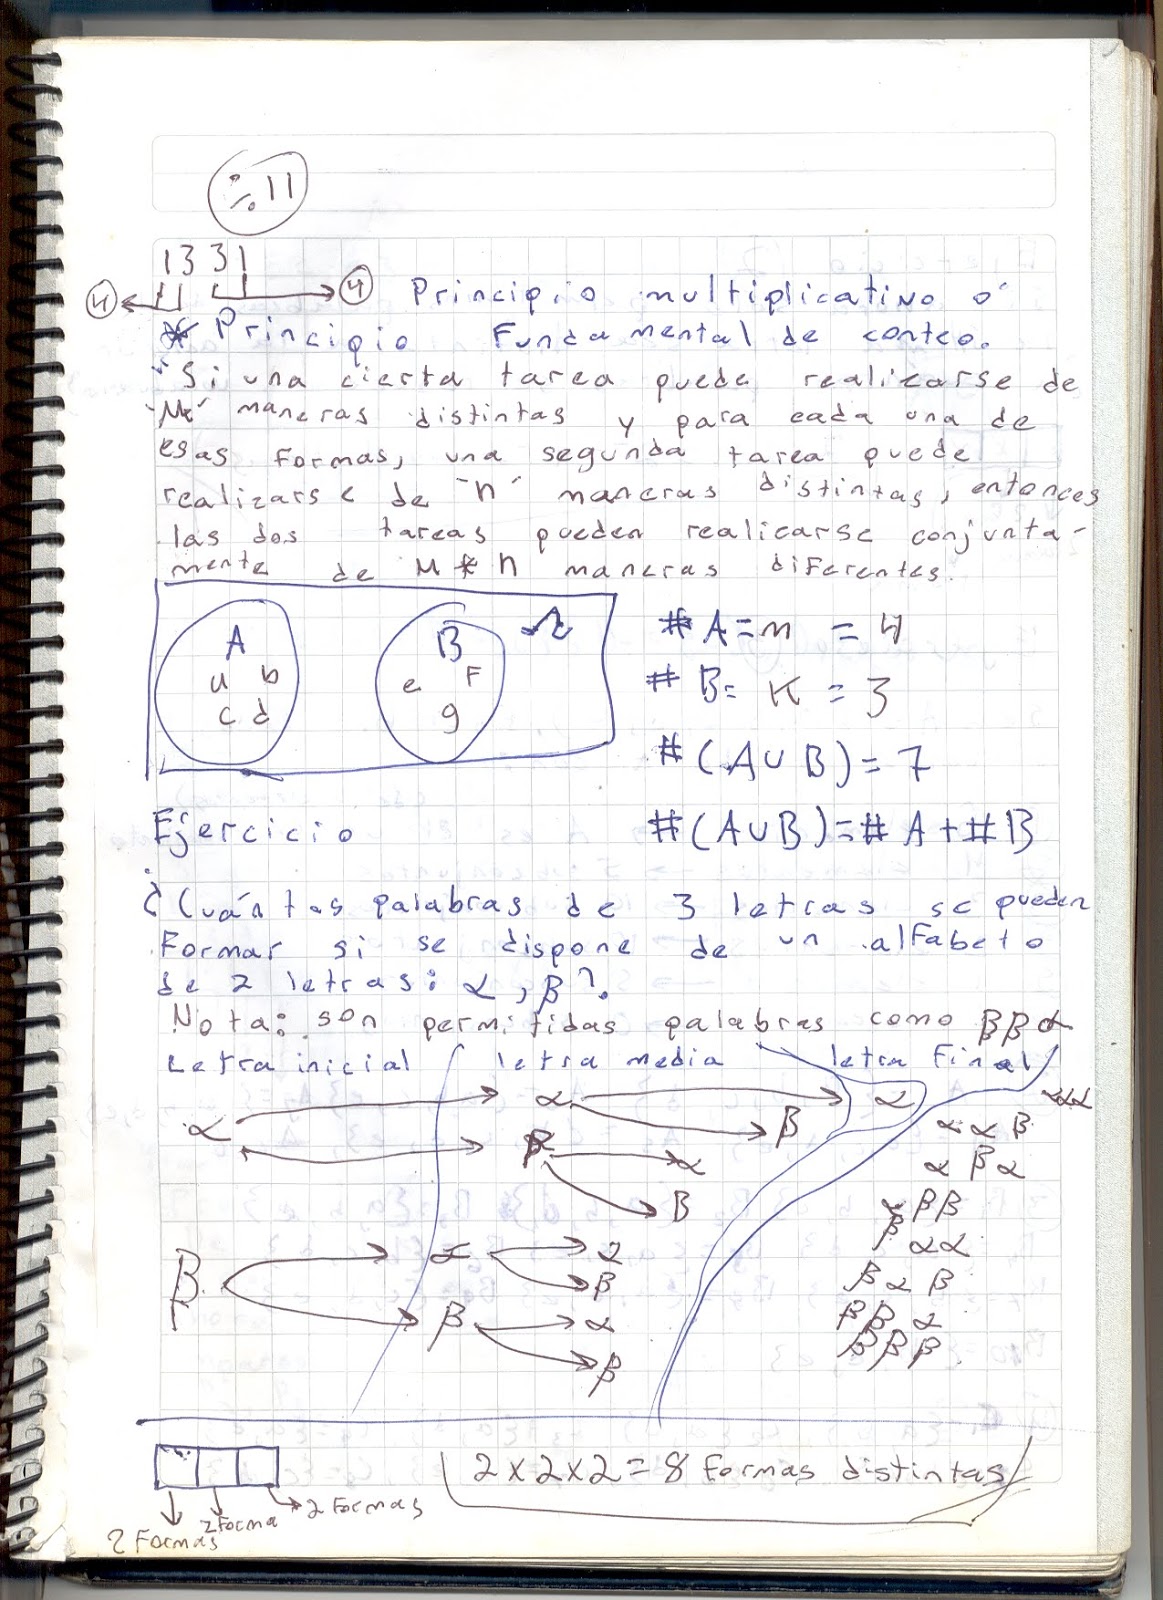 ÷11
13 31
4 4 Principio multiplicativo ó
* Principio Fundamental de conteo.
"Si una cierta tarea puede realizarse de
"M" maneras distintas y para cada una de
esas Formas, una segunda tarea puede
realizarse de "n" maneras distintas, entonces
las dos tareas pueden realicarse conjunta-
mente de M * n maneras diferentes.
A B Ω
a b
c d
e F
g
# A = m = 4
# B = K = 3
# (A∪B) = 7
# (A∪B) = # A + # B
Ejercicio
¿Cuántas palabras de 3 letras se pueden
Formar si se dispone de un alfabeto
de 2 letras: α, β?.
Nota: son permitidas palabras como ββα
Letra inicial letra media letra Final
α α α
β
β α
β
β α α
β
β α
β
ααα
ααβ
αβα
αββ
βαα
βαβ
ββα
βββ
2 Formas 2 Forma 2 Formas
2×2×2=8 Formas distintas